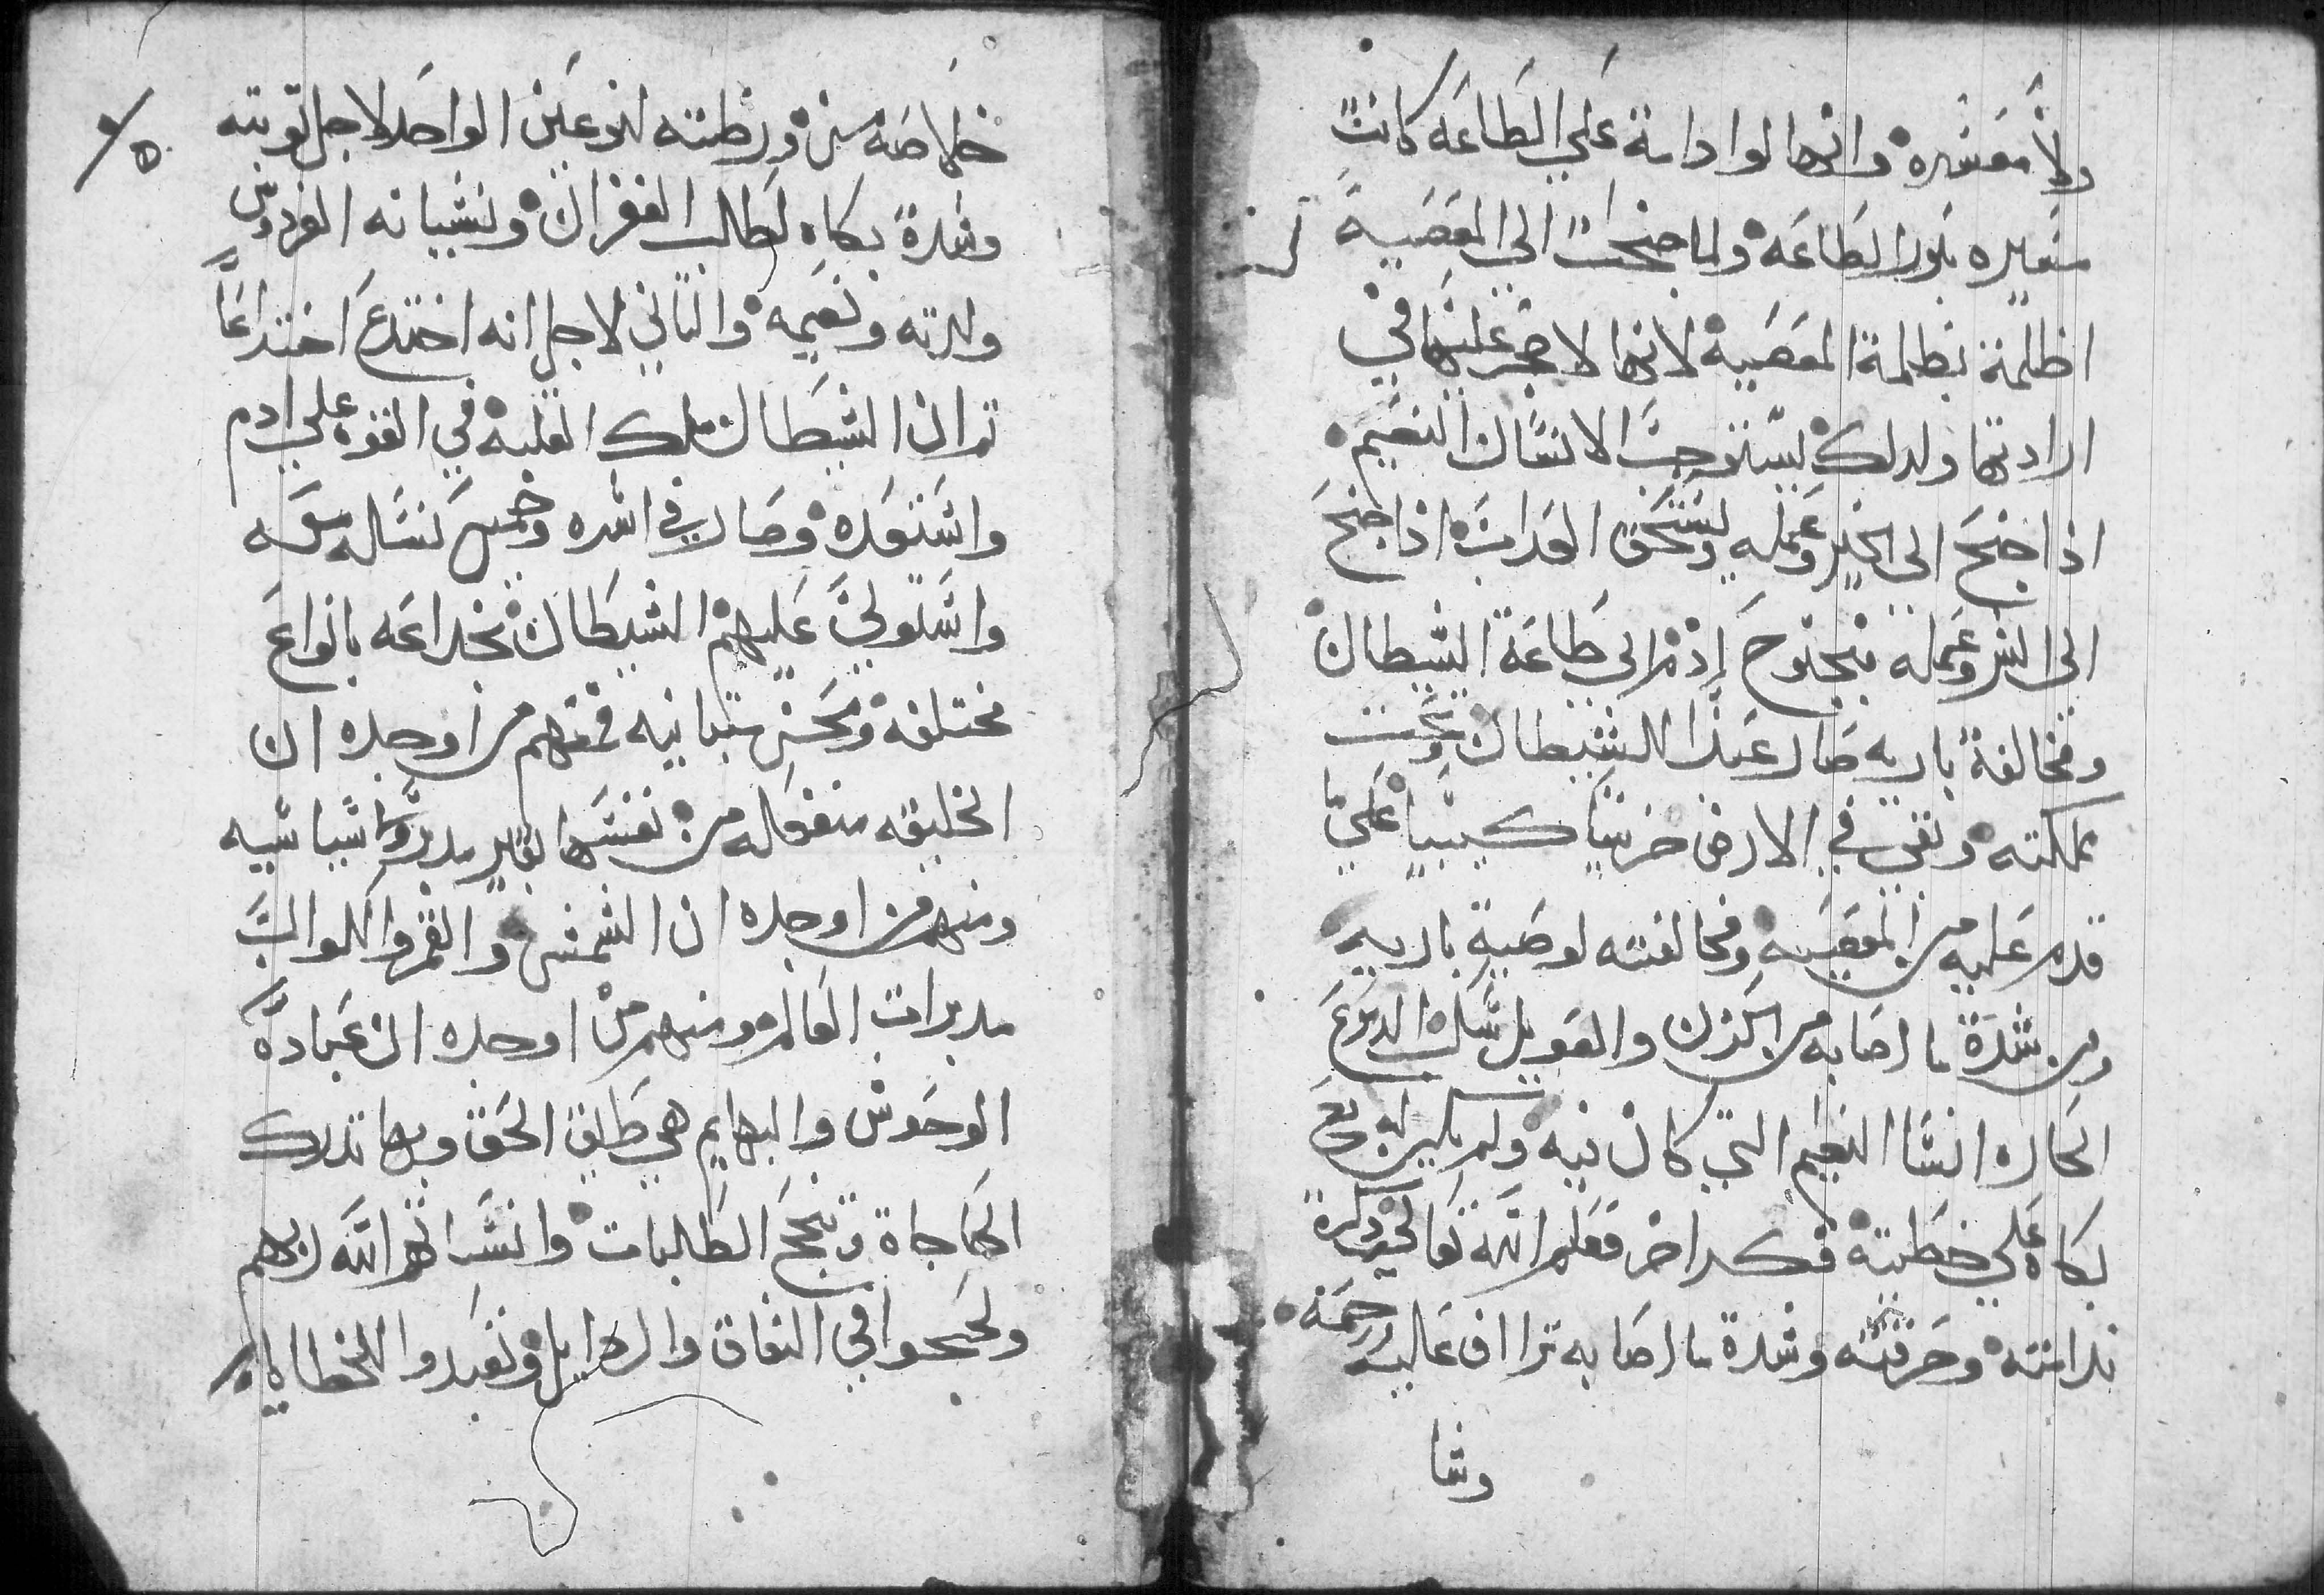 ولا معشره وانها لو ادامة علي الطاعه كانت
منيره بنور الطاعه ولما جنحت الي المعصية
اظلمة بظلمة المعصيه لانها لا حجر عليها في
ارادتها ولدلك يستوجب الانسان النعيم
اذا جنح الى الخير وعمله ويستحق العداب اذا جنح
الى الشر وعمله فبجنوح ادم الى طاعة الشيطان
ومخالفة باريه صار عبدا للشيطان وتحت
مملكته وبقى في الارض حزينا كييبا علي ما
قدم عليه من المعصيه ومخالفته لوصية باريه
ومن شدة ما اصابه من الحزن والعويل سكب الدموع
الحاره انسا النعيم التي كان فيه ولم يكن له مع
بكاه علي خطيته فكر اخر فعلم الله تعالى ذكرة
ندامته وحرقته وشدة ما اصابه تراأف عاليه برحمته
وشا
٥
خلاصه من ورطته لنوعين الواحد لاجل توبته
وشدة بكاه لطلب الغفران ونسيانه الفردوس
ولدته ونعيمه والتاني لاجل انه اختدع اختداعا
تم ان الشيطان ملك الغلبه في القوه علي ادم
واستعبده وصار في اسره وخمس نساله معه
واستولي عليهم الشيطان بخداعه بانواع
مختلفه ومحن متباينه فمنهم من اوجده ان
الخليقه منفعاله من نفسها بغير مدبر واشيا شيه
ومنهم من اوجده ان الشمس والقمر والكواكب
مدبرات العالم ومنهم من اوجده ان عبادة
الوحوش والبهايم هي طريق الحق وبها تدرك
الحاجاة وتنجح الطلبات وانساهم الله ربهم
ولججوا في النفاق والردايل وتعبدوا للخطايا